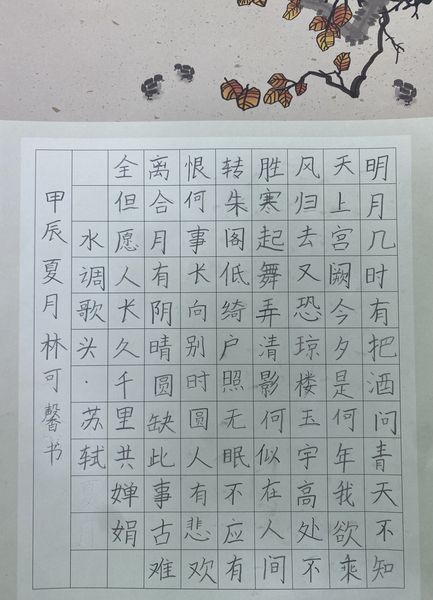 明月几时有把酒问青天不知
天上宫阙今夕是何年我欲乘
风归去又恐琼楼玉宇高处不
胜寒起舞弄清影何似在人间
转朱阁低绮户照无眠不应有
恨何事长向别时圆人有悲欢
离合月有阴晴圆缺此事古难
全但愿人长久千里共婵娟
水调歌头·苏轼
甲辰夏月林可馨书